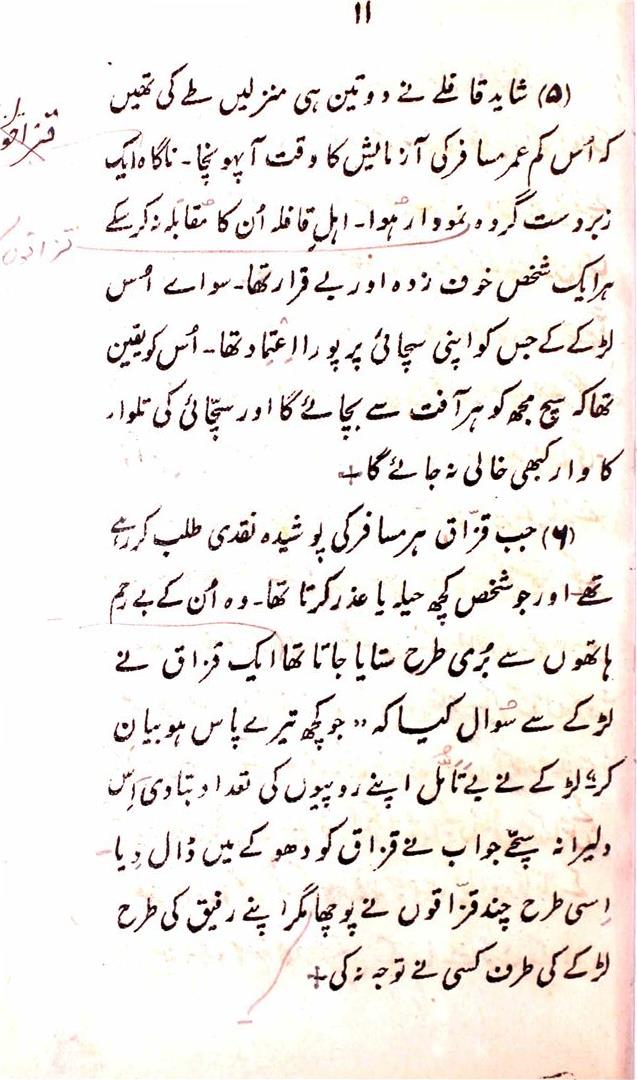 ۱۱
(۵) شاید قافلے نے دو تین ہی منزلیں طے کی تھیں
کہ اُس کم عمر مسافر کی آزمایش کا وقت آپہونچا۔ ناگاہ ایک
زبردست گروہ نمودار ہوا۔ اہلِ قافلہ اُن کا مقابلہ نہ کرسکے
ہر ایک شخص خوف زدہ اور بے قرار تھا۔ سواے اُس
لڑکے کے جس کو اپنی سچائی پر پورا اعتماد تھا۔ اُس کو یقین
تھا کہ سچ مجھ کو ہر آفت سے بچائے گا اور سچّائی کی تلوار
کا وار کبھی خالی نہ جائے گا +
(۶) جب قزّاق ہر مسافر کی پوشیدہ نقدی طلب کر رہے
تھے اور جو شخص کچھ حیلہ یا عذر کرتا تھا۔ وہ اُن کے بے رحم
ہاتھوں سے بُری طرح ستایا جاتا تھا ایک قزاق نے
لڑکے سے سُوال کیا کہ "جو کچھ تیرے پاس ہو بیان
کر" لڑکے نے بے تَاَمُّل اپنے روپیوں کی تعداد بتا دی اِس
دلیرانہ سچّے جواب نے قزاق کو دھوکے میں ڈال دِیا
اِسی طرح چند قزّاقوں نے پوچھا مگر اپنے رفیق کی طرح
لڑکے کی طرف کسی نے توجہ نہ کی +
قزاقوں